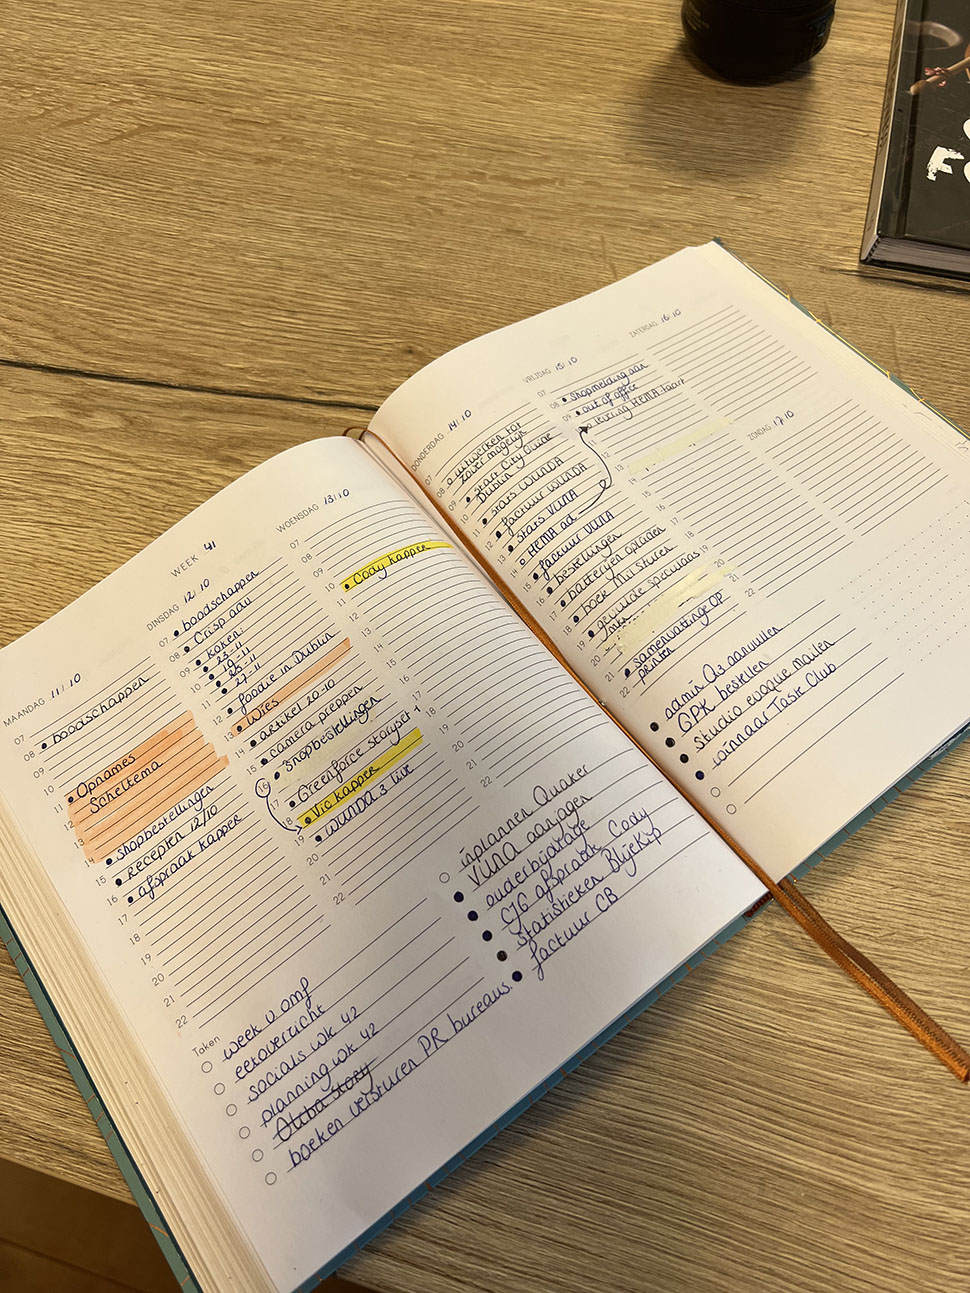 WEEK 41
MAANDAG 11/10
07
08
boodschappen
09
10
11
Opnames
Scheltema
12
13
14
shopbestellingen
15
recepten 12/10
16
afspraak kapper
17
18
19
20
21
22
DINSDAG 12/10
07
boodschappen
08
Crisp aan
09
Koken:
23-11
10
11
27-11
12
foodie in Dublin
13
Wies
14
artikel 20-10
15
camera preppen
16
Shopbestellingen
17
Greenforce storyset 1
18
Vic kapper
19
WUNDA 3 live
20
21
22
WOENSDAG 13/10
07
08
09
10
Cody kapper
11
12
13
14
15
16
17
18
19
20
21
22
Taken
week v omf
eetoverzicht
socials wk 42
planning wk 42
Story
boeken versturen PR bureaus.
inplannen Quaker
VUNA aanjagen
ouderbijdrage
CJG afspraak Cody
statistieken BlijeKip
factuur CB
DONDERDAG 14/10
07
uitwerken tot
zover mogelijk
08
09
start City Guide
Dublin
10
11
stars WUNDA
factuur WUNDA
12
13
stars VUNA
14
HEMA ad
15
factuur VUNA
16
bestellingen
17
batterijen opladen
18
boek insturen
19
gevulde speculaas
20
21
samenvatting GP
printen
22
VRIJDAG 15/10
07
08
shopmelding aan
09
out of office
10
levering HEMA taart
11
12
13
14
15
16
17
18
19
20
21
22
ZATERDAG 16/10
ZONDAG 17/10
admin Q3 aanvullen
GPK bestellen
Studio evoque mailen
winnaar Taste Club